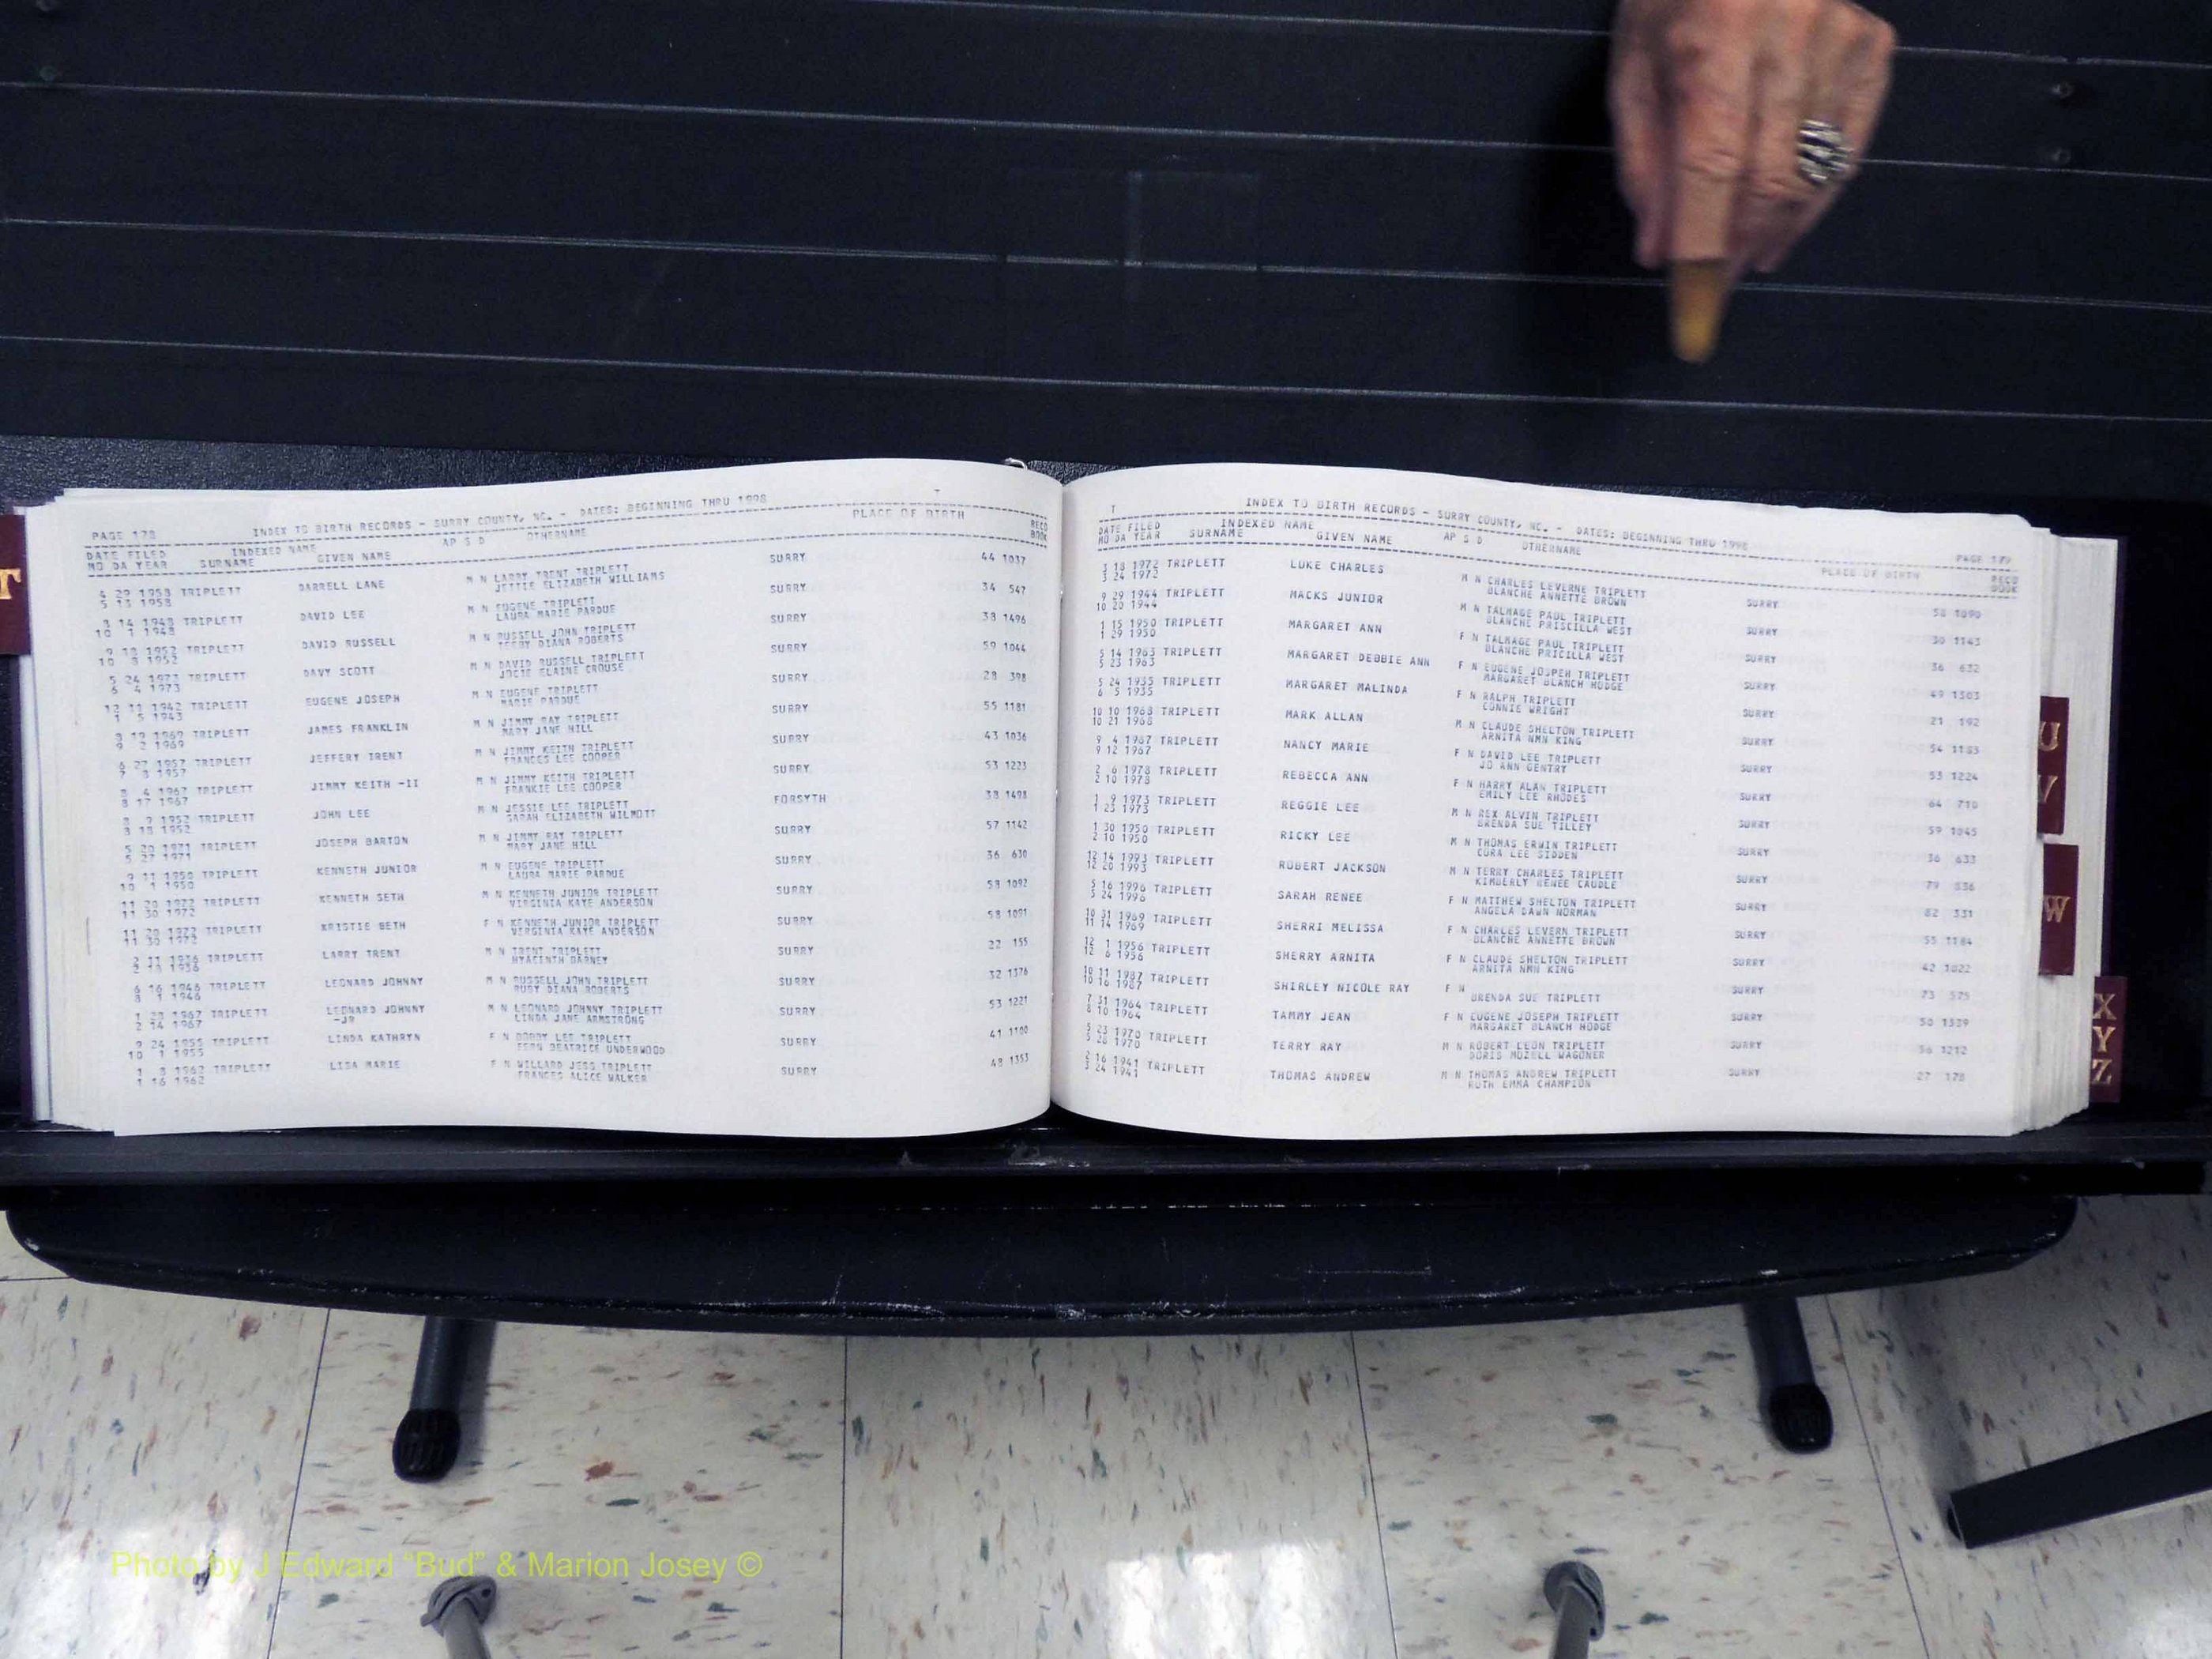 T
PAGE 178 INDEX TO BIRTH RECORDS - SURRY COUNTY, NC. - DATES: BEGINNING THRU 1998 T
DATE FILED INDEXED NAME AP S D OTHERNAME PLACE OF BIRTH RECD
MO DA YEAR SURNAME GIVEN NAME BOOK
4 29 1958 TRIPLETT DARRELL LANE M N LARRY TRENT TRIPLETT SURRY 44 1037
5 13 1958 JETTIE ELIZABETH WILLIAMS
8 14 1948 TRIPLETT DAVID LEE M N EUGENE TRIPLETT SURRY 34 547
10 1 1948 LAURA MARIE PARDUE
9 18 1952 TRIPLETT DAVID RUSSELL M N RUSSELL JOHN TRIPLETT SURRY 38 1496
10 8 1952 DIANA ROBERTS
5 24 1973 TRIPLETT DAVY SCOTT M N DAVID RUSSELL TRIPLETT SURRY 59 1044
6 4 1973 ELAINE CROUSE
12 11 1942 TRIPLETT EUGENE JOSEPH M N EUGENE TRIPLETT SURRY 28 398
1 5 1943 MARIE PARDUE
8 19 1969 TRIPLETT JAMES FRANKLIN M N JIMMY RAY TRIPLETT SURRY 55 1181
9 2 1969 MARY JANE HILL
6 27 1957 TRIPLETT JEFFERY TRENT M N JIMMY KEITH TRIPLETT SURRY 43 1036
7 8 1957 FRANCES LEE COOPER
8 4 1967 TRIPLETT JIMMY KEITH -II M N JIMMY KEITH TRIPLETT SURRY 53 1223
8 17 1967 FRANKIE LEE COOPER
8 9 1952 TRIPLETT JOHN LEE M N JESSIE LEE TRIPLETT FORSYTH 38 1498
8 18 1952 SARAH ELIZABETH WILMOTT
5 20 1971 TRIPLETT JOSEPH BARTON M N JIMMY RAY TRIPLETT SURRY 57 1142
5 27 1971 MARY JANE HILL
9 11 1950 TRIPLETT KENNETH JUNIOR M N EUGENE TRIPLETT SURRY 36 630
10 1 1950 LAURA MARIE PARDUE
11 20 1972 TRIPLETT KENNETH SETH M N KENNETH JUNIOR TRIPLETT SURRY 58 1092
11 30 1972 VIRGINIA KAYE ANDERSON
11 20 1972 TRIPLETT KRISTIE BETH F N KENNETH JUNIOR TRIPLETT SURRY 58 1091
11 30 1972 VIRGINIA KAYE ANDERSON
2 11 1936 TRIPLETT LARRY TRENT M N TRENT TRIPLETT SURRY 22 155
2 18 1936 HYACINTH DARNEY
6 16 1946 TRIPLETT LEONARD JOHNNY M N RUSSELL JOHN TRIPLETT SURRY 32 1376
8 1 1946 RUBY DIANA ROBERTS
1 28 1967 TRIPLETT LEONARD JOHNNY M N LEONARD JOHNNY TRIPLETT SURRY 53 1221
2 14 1967 -JR LINDA JANE ARMSTRONG
9 24 1955 TRIPLETT LINDA KATHRYN F N BOBBY LEE TRIPLETT SURRY 41 1100
10 1 1955 FERN BEATRICE UNDERWOOD
1 8 1962 TRIPLETT LISA MARIE F N WILLARD JESS TRIPLETT SURRY 48 1353
1 16 1962 FRANCES ALICE WALKER
T INDEX TO BIRTH RECORDS - SURRY COUNTY, NC. - DATES: BEGINNING THRU 1998 PAGE 179
DATE FILED INDEXED NAME AP S D OTHERNAME PLACE OF BIRTH RECD
MO DA YEAR SURNAME GIVEN NAME BOOK
3 18 1972 TRIPLETT LUKE CHARLES M N CHARLES LEVERNE TRIPLETT SURRY 58 1090
3 24 1972 BLANCHE ANNETTE BROWN
9 29 1944 TRIPLETT MACKS JUNIOR M N TALMAGE PAUL TRIPLETT SURRY 30 1143
10 20 1944 BLANCHE PRISCILLA WEST
1 15 1950 TRIPLETT MARGARET ANN F N TALMAGE PAUL TRIPLETT SURRY 36 632
1 29 1950 BLANCHE PRICILLA WEST
5 14 1963 TRIPLETT MARGARET DEBBIE ANN F N EUGENE JOSPEH TRIPLETT SURRY 49 1303
5 23 1963 MARGARET BLANCH HODGE
5 24 1935 TRIPLETT MARGARET MALINDA F N RALPH TRIPLETT SURRY 21 192
6 5 1935 CONNIE WRIGHT
10 10 1968 TRIPLETT MARK ALLAN M N CLAUDE SHELTON TRIPLETT SURRY 54 1183
10 21 1968 ARNITA NMN KING
9 4 1967 TRIPLETT NANCY MARIE F N DAVID LEE TRIPLETT SURRY 53 1224
9 12 1967 JO ANN GENTRY
2 6 1978 TRIPLETT REBECCA ANN F N HARRY ALAN TRIPLETT SURRY 64 710
2 10 1978 EMILY LEE RHODES
1 9 1973 TRIPLETT REGGIE LEE M N REX ALVIN TRIPLETT SURRY 59 1045
1 23 1973 BRENDA SUE TILLEY
1 30 1950 TRIPLETT RICKY LEE M N THOMAS ERWIN TRIPLETT SURRY 36 633
2 10 1950 CORA LEE SIDDEN
12 14 1993 TRIPLETT ROBERT JACKSON M N TERRY CHARLES TRIPLETT SURRY 79 836
12 20 1993 KIMBERLY RENEE CAUDLE
5 16 1996 TRIPLETT SARAH RENEE F N MATTHEW SHELTON TRIPLETT SURRY 82 331
5 24 1996 ANGELA DAWN NORMAN
10 31 1969 TRIPLETT SHERRI MELISSA F N CHARLES LEVERN TRIPLETT SURRY 55 1184
11 14 1969 BLANCHE ANNETTE BROWN
12 1 1956 TRIPLETT SHERRY ARNITA F N CLAUDE SHELTON TRIPLETT SURRY 42 1022
12 6 1956 ARNITA NMN KING
10 11 1987 TRIPLETT SHIRLEY NICOLE RAY F N SURRY 73 575
10 16 1987 BRENDA SUE TRIPLETT
7 31 1964 TRIPLETT TAMMY JEAN F N EUGENE JOSEPH TRIPLETT SURRY 50 1539
8 10 1964 MARGARET BLANCH HODGE
5 23 1970 TRIPLETT TERRY RAY M N ROBERT LEON TRIPLETT SURRY 56 1212
5 28 1970 DORIS MOZELL WAGONER
2 16 1941 TRIPLETT THOMAS ANDREW M N THOMAS ANDREW TRIPLETT SURRY 27 178
3 24 1941 RUTH EMMA CHAMPION
U
V
W
X
Y
Z
Photo by J Edward "Bud" & Marion Josey ©